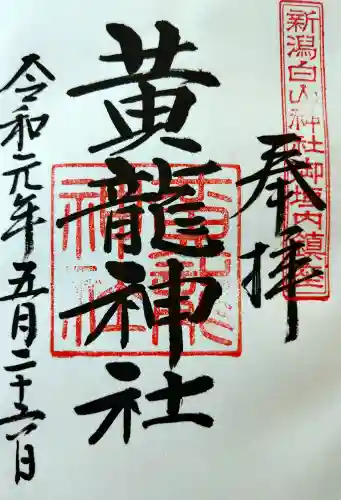 新潟白山神社御境内鎮座
奉拝
黄龍神社
黄龍神社
令和元年五月二十六日